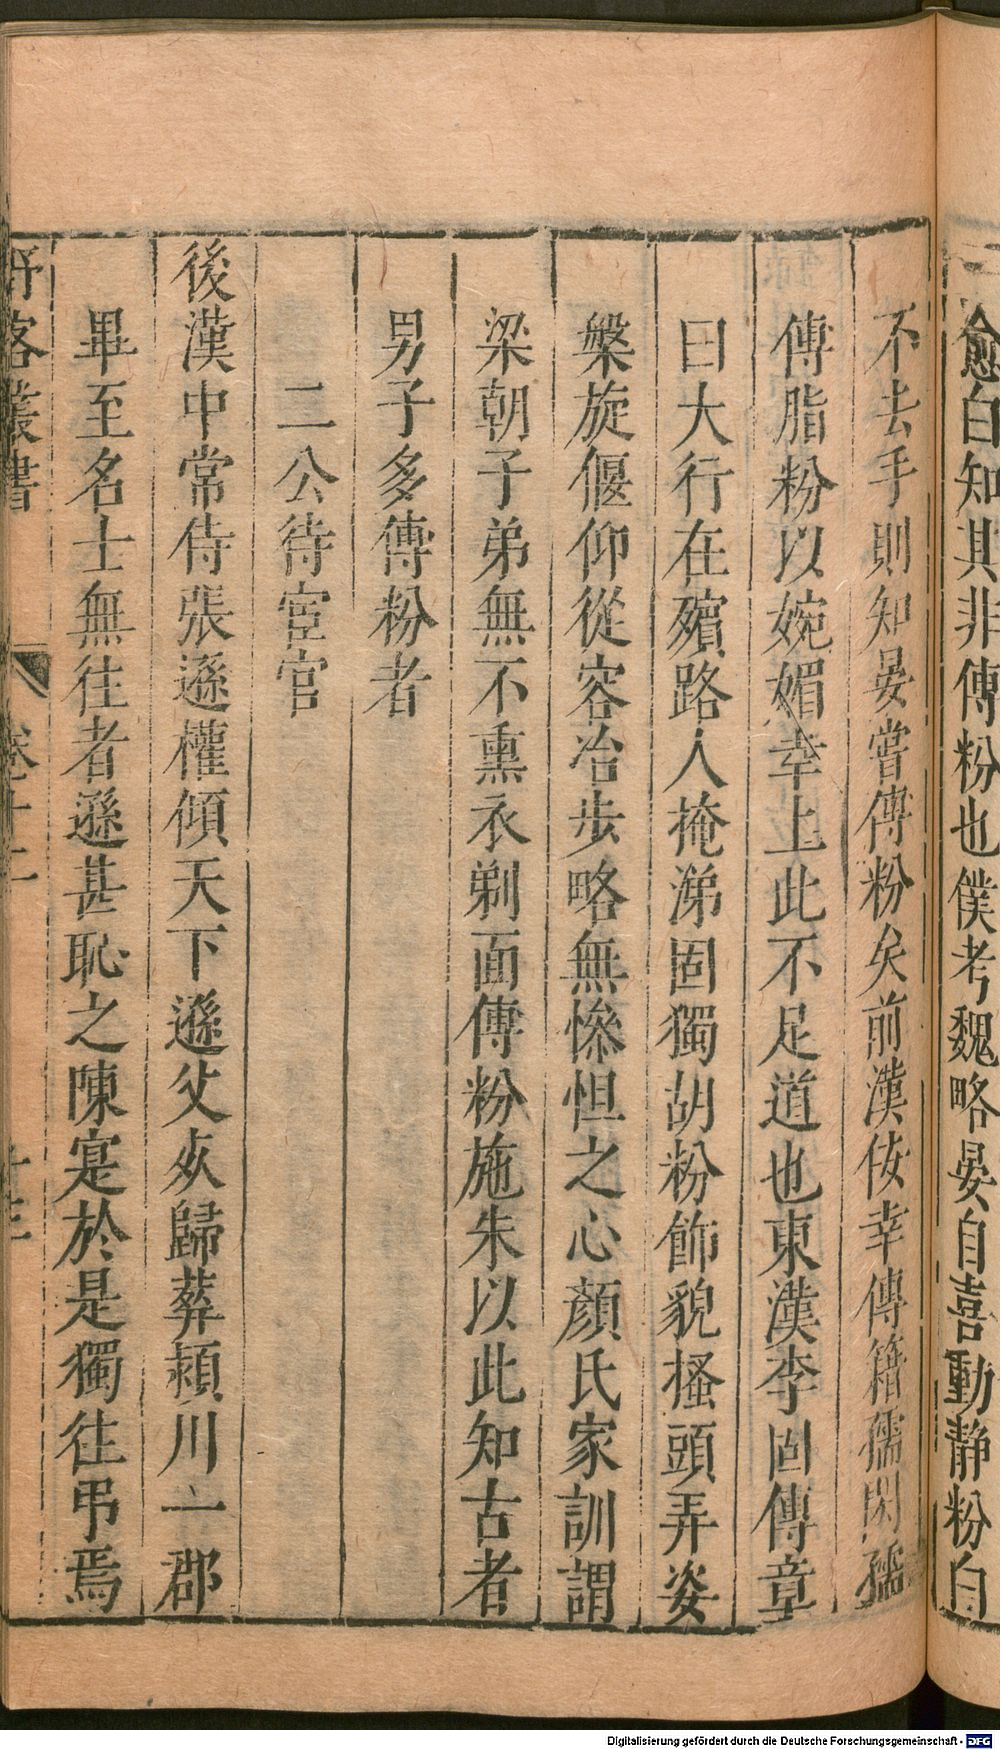 愈白知其非傅粉也僕考魏略晏自喜動靜粉白
不去手則知晏嘗傅粉矣前漢佞幸傳籍孺閎孺
傅脂粉以婉媚幸上此不足道也東漢李固傳章
曰大行在殯路人掩涕固獨胡粉飾貌搔頭弄姿
槃旋偃仰從容冶步略無慘怛之心顏氏家訓謂
梁朝子弟無不熏衣剃面傅粉施朱以此知古者
男子多傅粉者
二公待宦官
後漢中常侍張遜權傾天下遜父死歸葬潁川一郡
畢至名士無往者遜甚恥之陳寔於是獨往弔焉
野客叢書
卷十二
十三
Digitalisierung gefördert durch die Deutsche Forschungsgemeinschaft - DFG